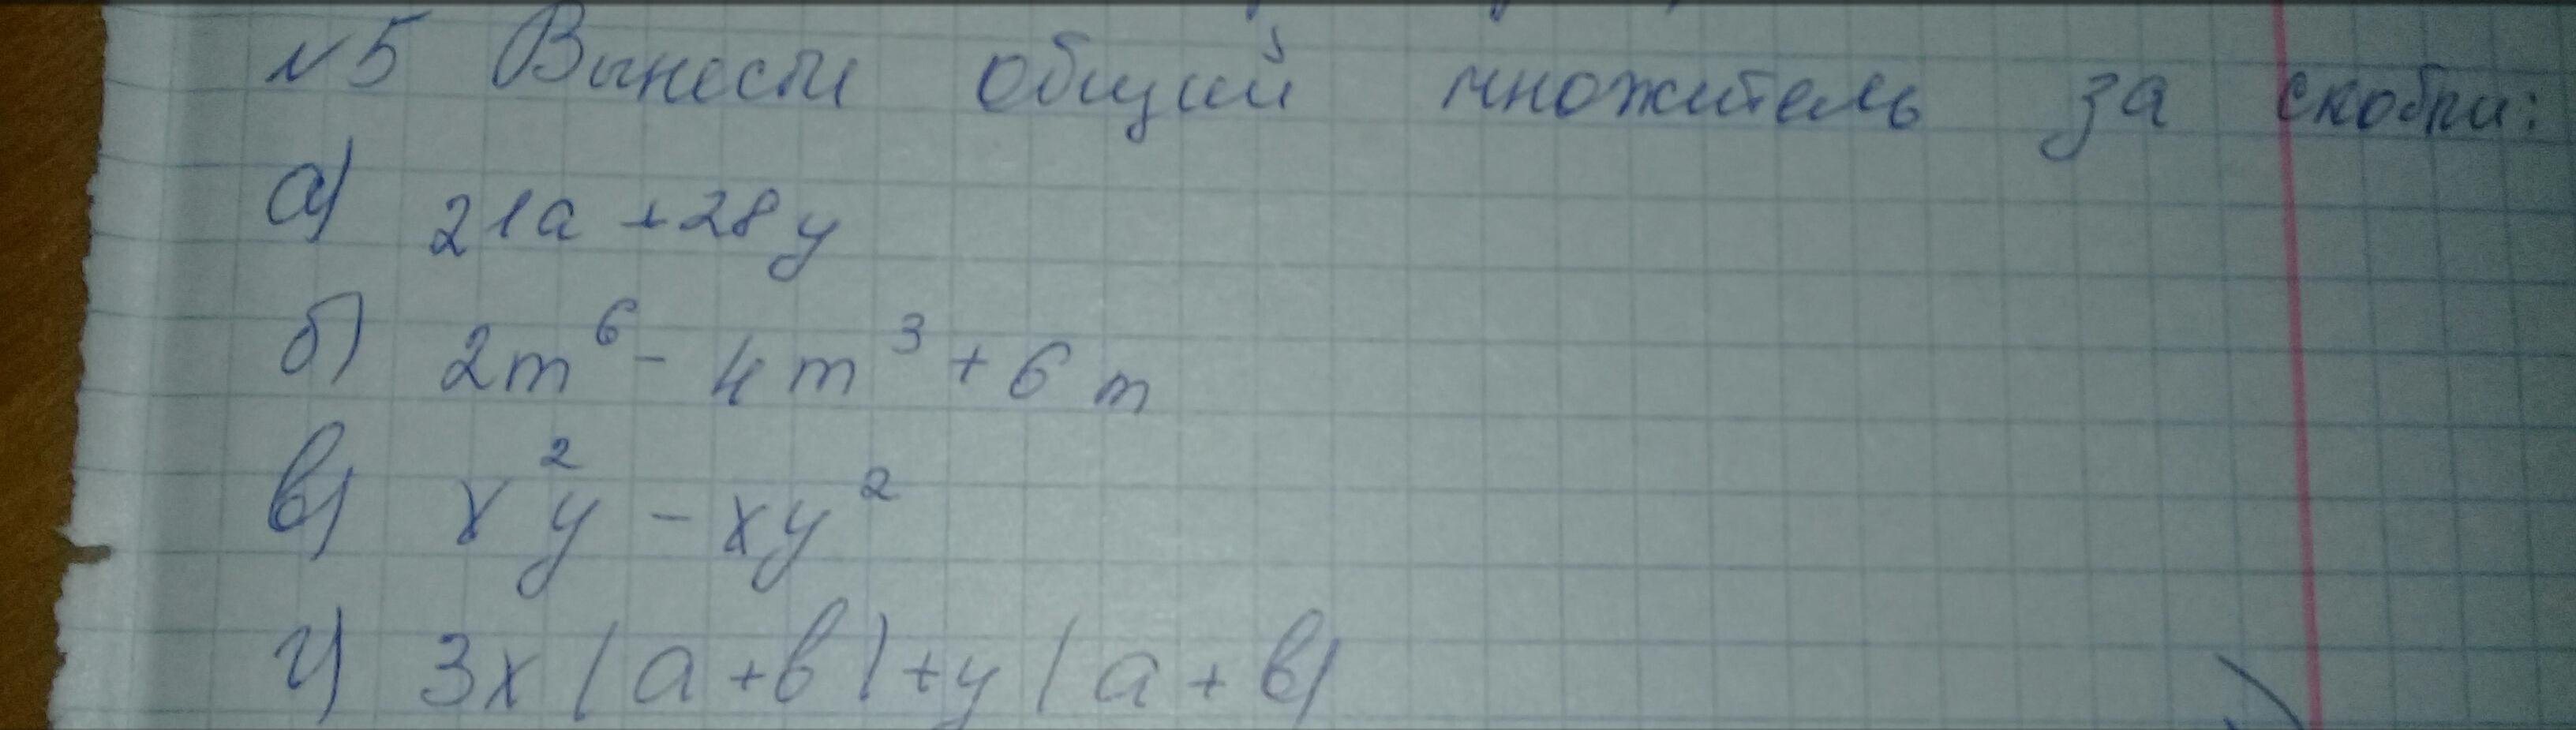 №5 Вынести общий множитель за скобки:
а) 21а + 28у
б) 2m⁶ - 4m³ + 6m
в) x²y - xy²
г) 3x(а+в)+у(а+в)